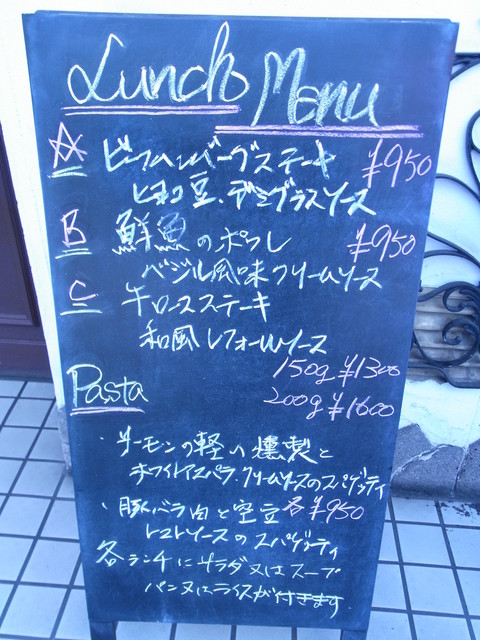 Lunch Menu
A ビーフハンバーグステーキ ¥950
ヒヨコ豆・デミグラスソース
B 鮮魚のポワレ ¥950
バジル風味クリームソース
C 牛ロースステーキ
和風レフォールソース
150g ¥1300
Pasta 200g ¥1600
・サーモンの軽い燻製と
ホワイトアスパラ・クリームソースのスパゲッティ
・豚バラ肉と空豆 各¥950
トマトソースのスパゲッティ
各ランチにサラダ又はスープ
パン又はライスが付きます